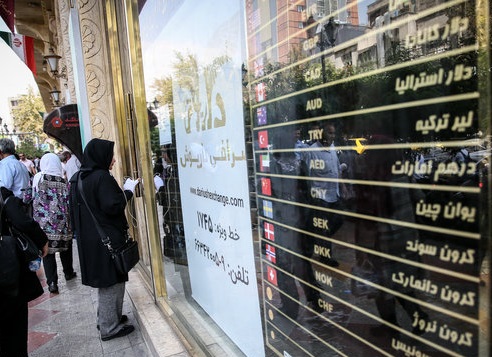 دلار کانادا CAD
دلار استرالیا AUD
لیر ترکیه TRY
درهم امارات AED
یوان چین CNY
کرون سوئد SEK
کرون دانمارک DKK
کرون نروژ NOK
سوئیس CHF
صرافی
خط ویژه: ۱۷۴۵
تلفن: